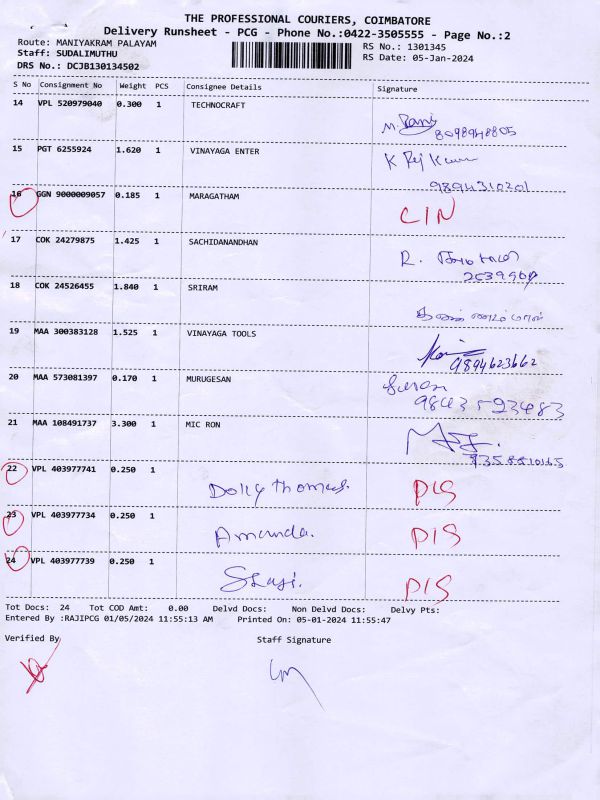 THE PROFESSIONAL COURIERS, COIMBATORE
Delivery Runsheet - PCG - Phone No.:0422-3505555 - Page No.:2
Route: MANIYAKRAM PALAYAM RS No.: 1301345
Staff: SUDALIMUTHU RS Date: 05-Jan-2024
DRS No.: DCJB130134502
S No Consignment No Weight PCS Consignee Details Signature
14 VPL 520979040 0.300 1 TECHNOCRAFT
8098948805
15 PGT 6255924 1.620 1 VINAYAGA ENTER
9894310201
16 GGN 9000009057 0.185 1 MARAGATHAM CIN
17 COK 24279875 1.425 1 SACHIDANANDHAN R.
18 COK 24526455 1.840 1 SRIRAM
19 MAA 300383128 1.525 1 VINAYAGA TOOLS
9894623662
20 MAA 573081397 0.170 1 MURUGESAN
9843593483
21 MAA 108491737 3.300 1 MIC RON
22 VPL 403977741 0.250 1 Dolly Thomas. DIS
23 VPL 403977734 0.250 1 Amanda. DIS
24 VPL 403977739 0.250 1 Shaji. DIS
Tot Docs: 24 Tot COD Amt: 0.00 Delvd Docs: Non Delvd Docs: Delvy Pts:
Entered By :RAJIPCG 01/05/2024 11:55:13 AM Printed On: 05-01-2024 11:55:47
Verified By Staff Signature